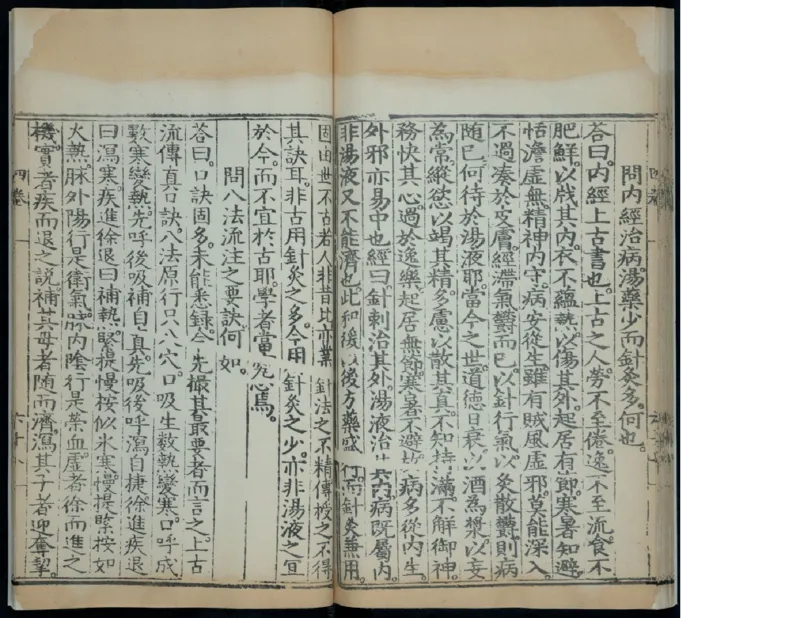 問內經治病湯藥少而針灸多。何也。
答曰。內經上古書也。上古之人。勞不至倦。逸不至流。食不
肥鮮。以戕其內。衣不蘊熱。以傷其外。起居有節。寒暑知避。
恬澹虛無。精神內守。病安從生。雖有賊風虛邪。莫能深入。
不過湊於皮膚。經滯氣鬱而已。以針行氣。以灸散鬱。則病
隨已。何待於湯液耶。當今之世。道德日衰。以酒為漿。以妄
為常。縱慾以竭其精。多慮以散其真。不知持滿。不解御神。
務快其心。過於逸樂。起居無節。寒暑不避。故病多從內生。
外邪亦易中也。經曰。針刺治其外。湯液治其內。病既屬內。
非湯液又不能濟也。此和緩以後。方藥盛行。而針灸兼用。
固由世不古若。人非昔比。亦業針法之不精。傳授之不得
其訣耳。非古用針灸之多。今用針灸之少。亦非湯液之宜
於今。而不宜於古耶。學者當究心焉。
問八法流注之要訣何如。
答曰。口訣固多。未能悉錄。今先撮其最要者而言之。上古
流傳真口訣。八法原行只八穴。口吸生數熱變寒。口呼成
數寒變熱。先呼後吸補自真。先吸後呼瀉自捷。徐進疾退
曰瀉寒。疾進徐退曰補熱。緊提慢按似氷寒。慢提緊按如
火熱。脉外陽行是衛氣。脉內陰行是榮血。虛者徐而進之
機。實者疾而退之說。補其母者隨而濟。瀉其子者迎奪挈。
四卷